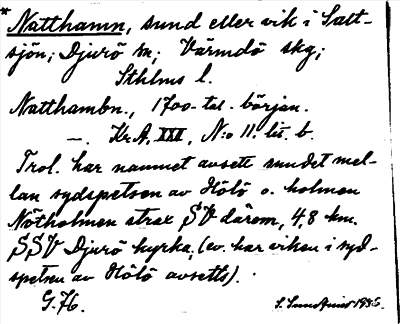 * Natthamn, sund eller vik i Salt-
sjön; Djurö sn; Värmdö skg;
Sthlms l.
Natthambn., 1700-tal. början.
—. Kr.A. XXX, N:o 11. lit. b.
Trol. har namnet avsett sundet mel-
lan sydspetsen av Hölö o. holmen
Nötholmen strax SV därom, 4,8 km.
SSV Djurö kyrka, (ev. har viken i syd-
spetsen av Hölö avsetts).
G.76.
1935.